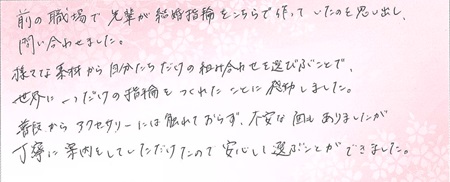 前の職場で先輩が結婚指輪をこちらで作っていたのを思い出し、
問い合わせました。
様々な素材から自分たちだけの組み合わせを選びぶことで、
世界に一つだけの指輪をつくれたことに感動しました。
普段からアクセサリーには触れておらず、不安な面もありましたが
丁寧に案内をしていただけたので安心して選ぶことができました。